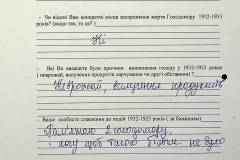 - Чи відомі Вам конкретні місця захоронення жертв Голодомору 1932-1933
років? (якщо так, то де? )
Ні
- Які Ви вважаєте були причини виникнення голоду у 1932-1933 роках
( неврожай, вилучення продуктів харчування чи другі обставини ) ?
Неврожай, вилучення продуктів
- Ваше особисте ставлення до подій 1932-1933 років ( за бажанням)
Пам'ятаю голодомору,
хочу щоб такого більше не було